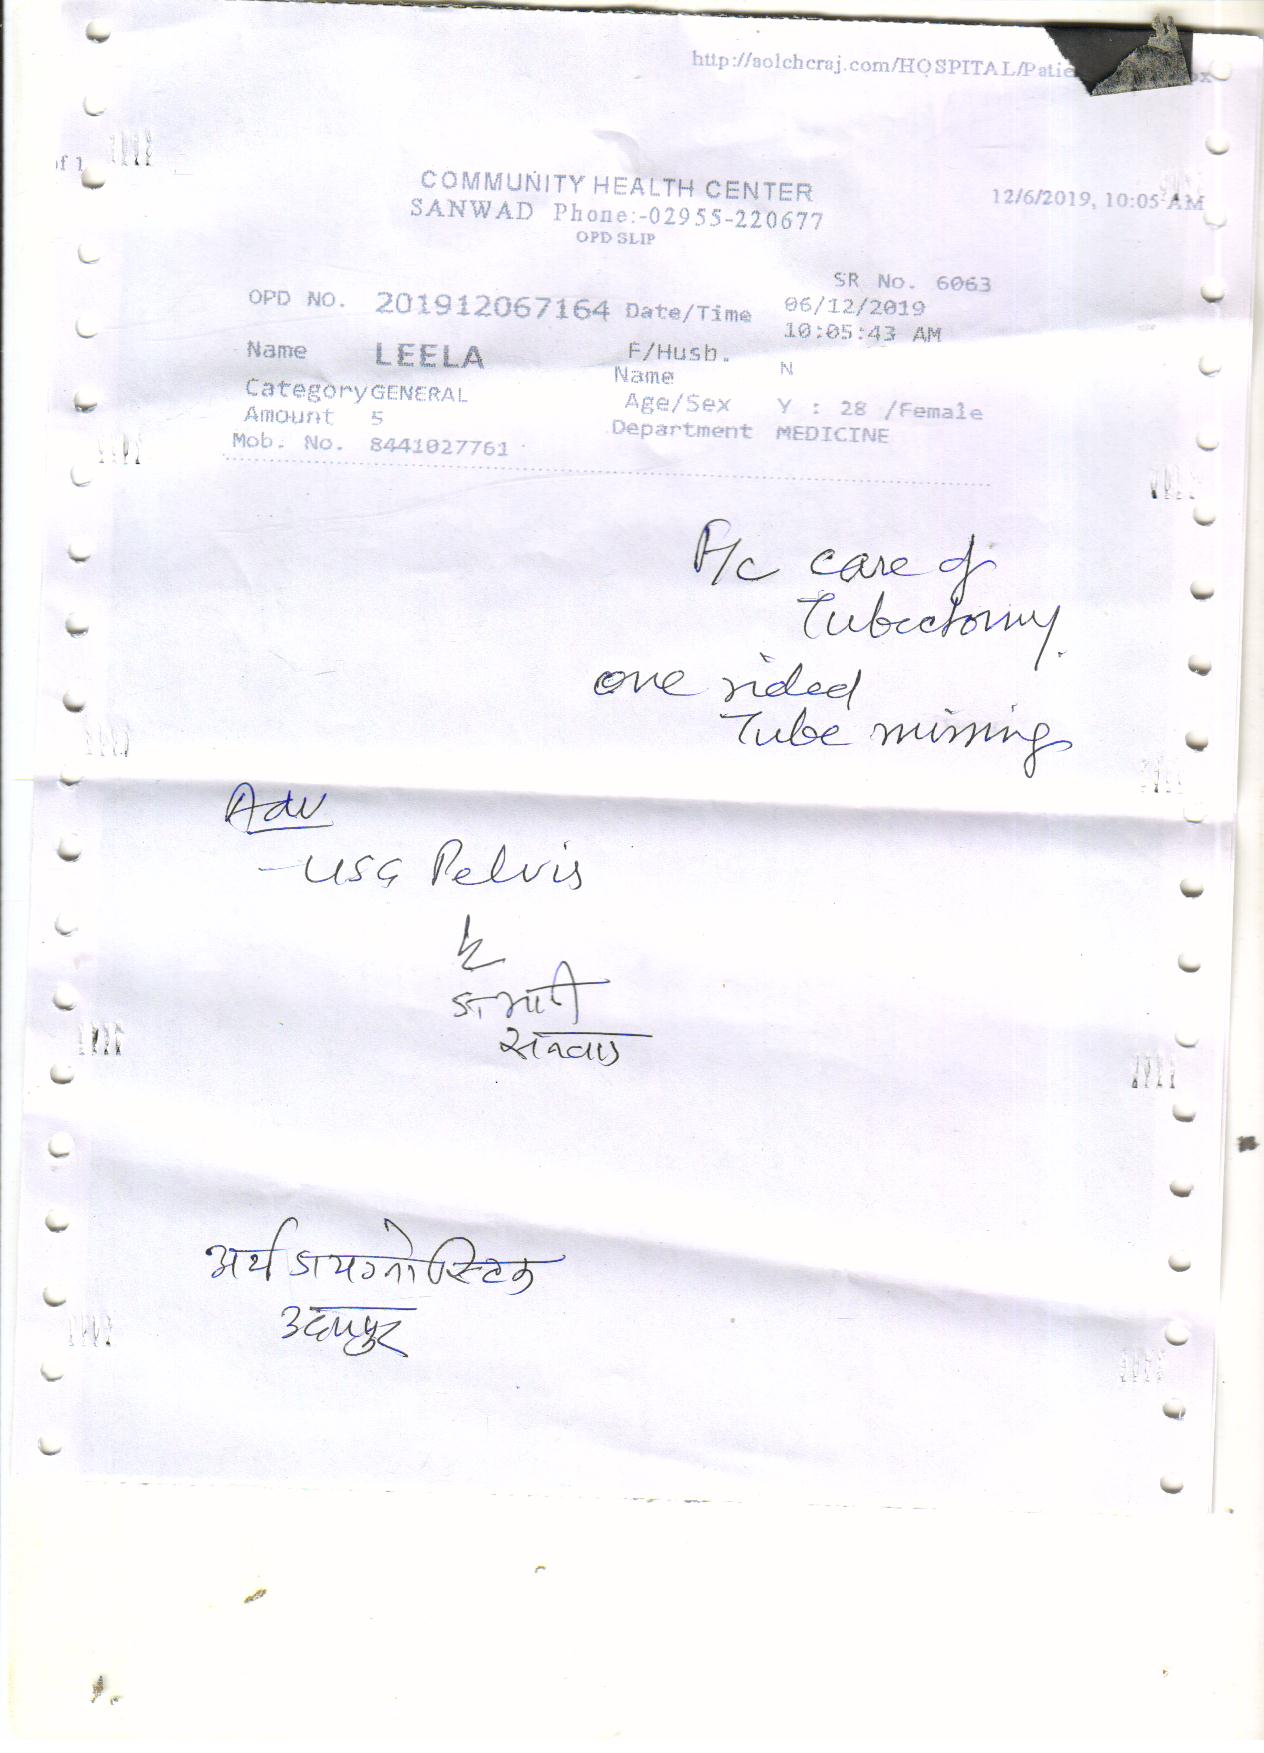 http://aolchcraj.com/HOSPITAL/Patie
of 1
COMMUNITY HEALTH CENTER
12/6/2019, 10:05 AM
SANWAD Phone:-02955-220677
OPD SLIP
SR No. 6063
OPD NO. 201912067164 Date/Time 06/12/2019
10:05:43 AM
Name LEELA F/Husb. Name N
Category GENERAL Age/Sex Y : 28 /Female
Amount 5 Department MEDICINE
Mob. No. 8441027761
P/c care of
Tubectomy.
one sided
Tube missing
Adv
- USG Pelvis
अर्थ डायग्नोस्टिक
उदयपुर